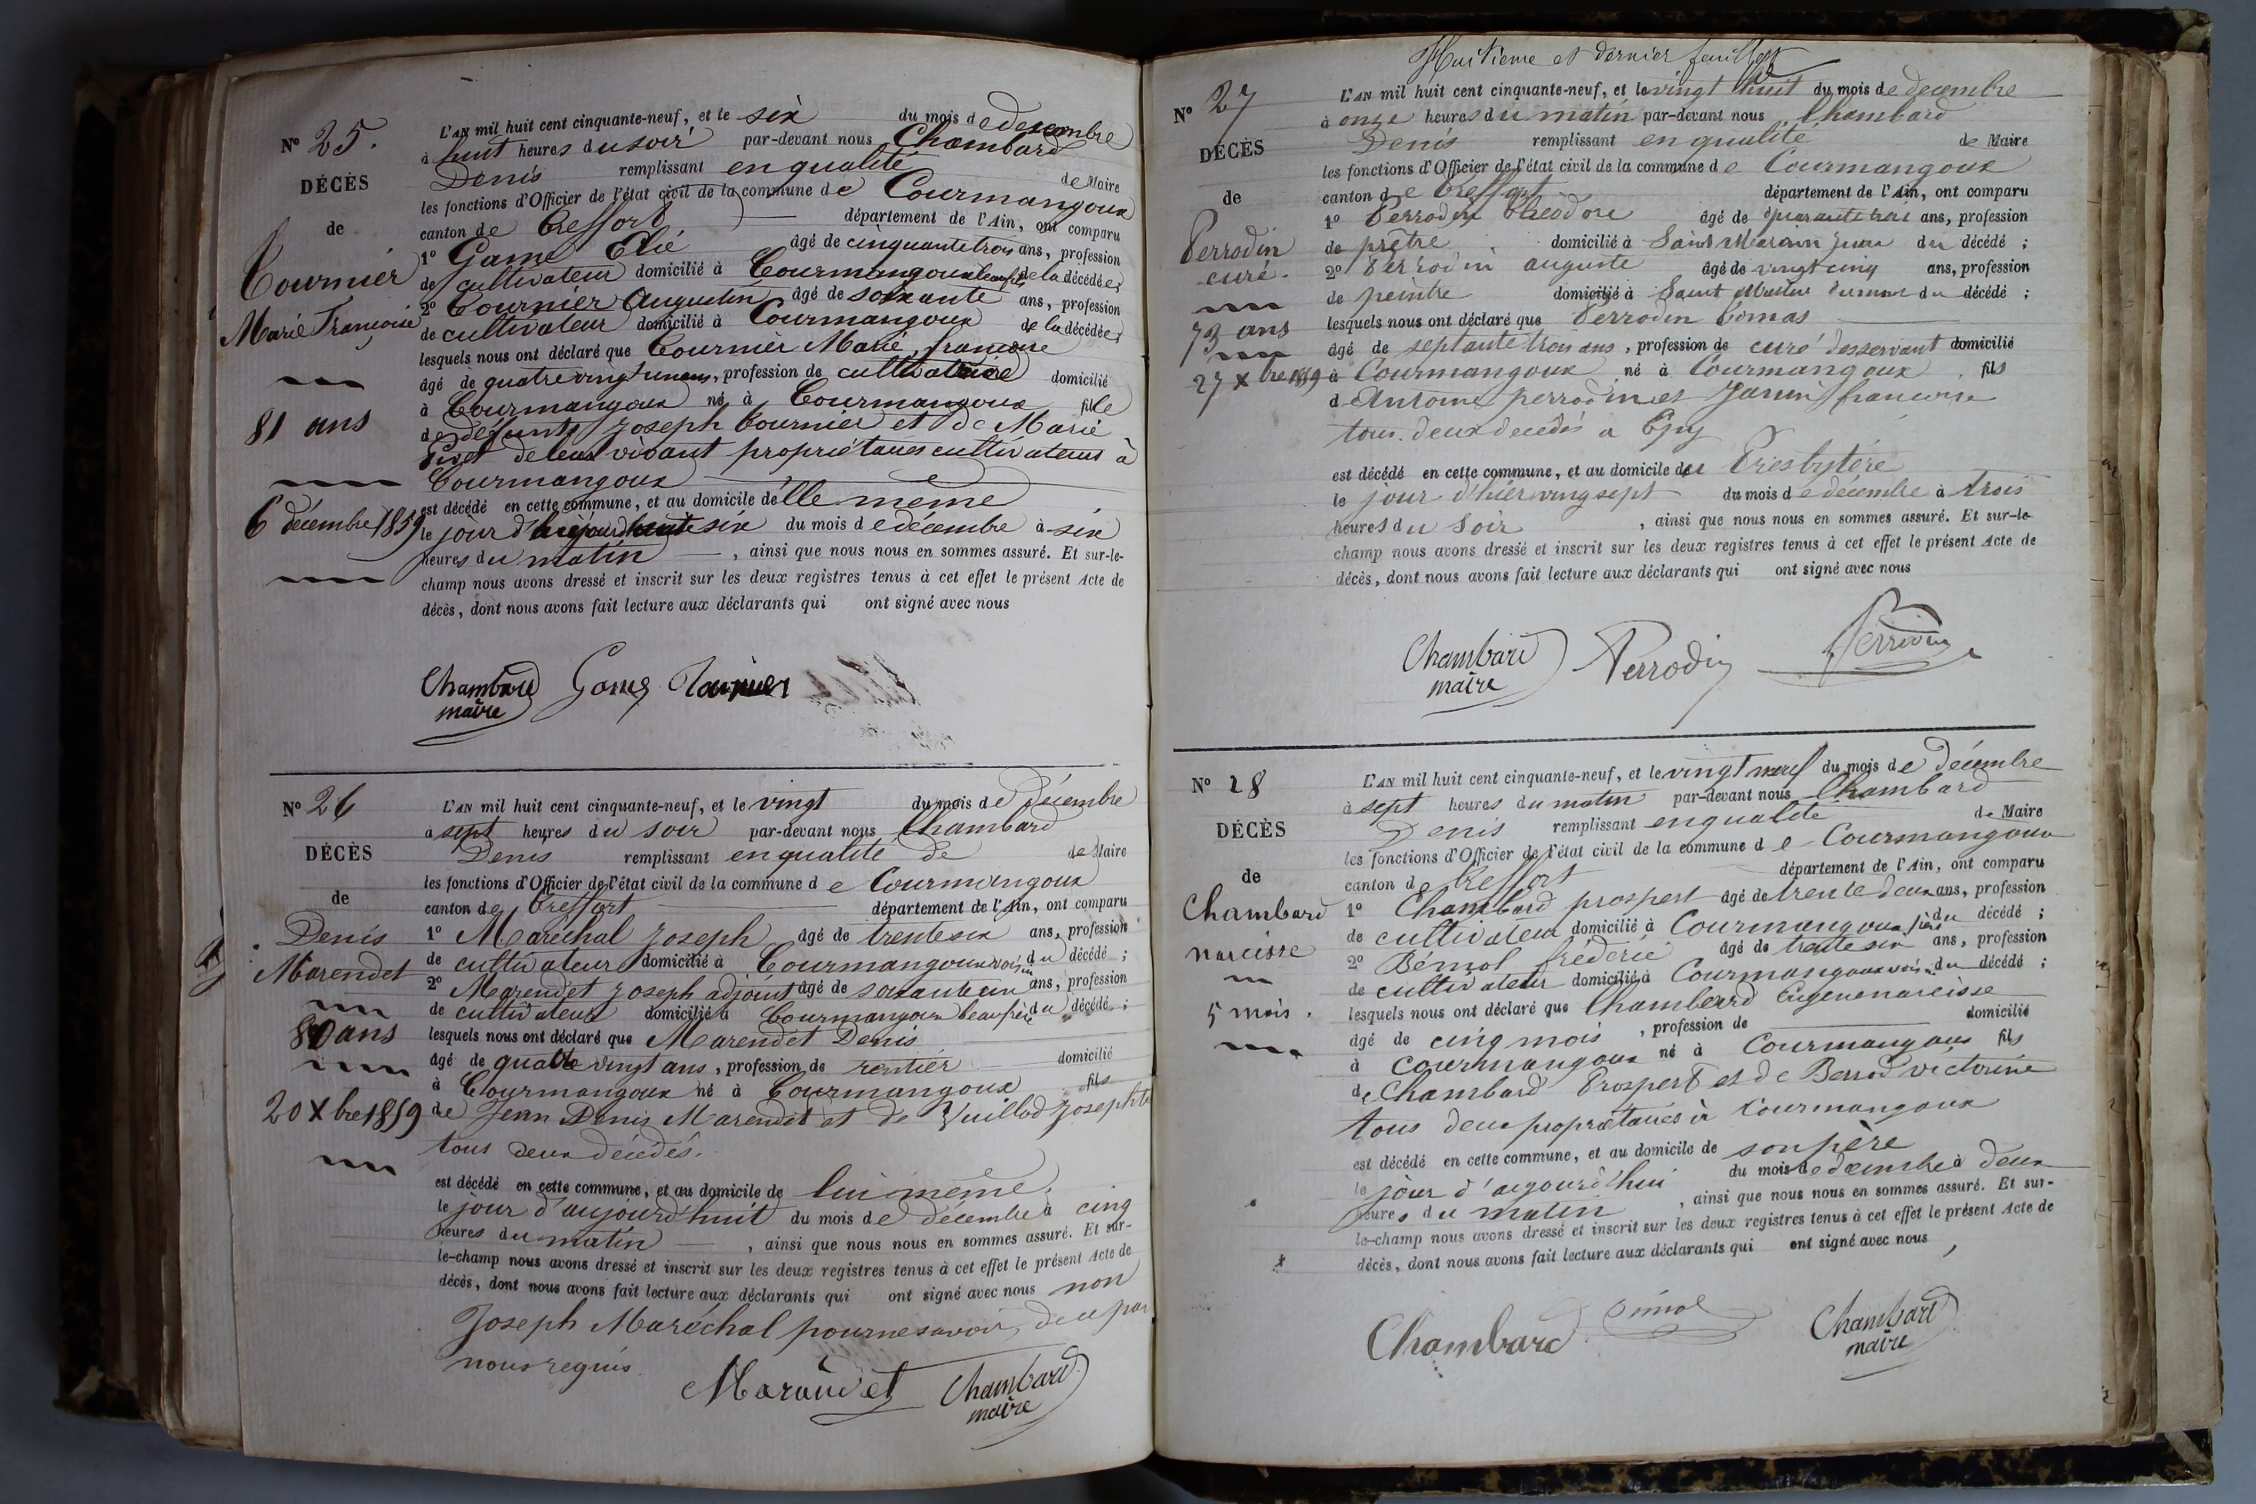 N° 25.
DÉCÈS
de
Tournier
Marie Françoise
81 ans
6 décembre 1859
L'AN mil huit cent cinquante-neuf, et le six du mois de décembre
à huit heures du soir par-devant nous Chambard
Denis remplissant en qualité de Maire
les fonctions d'Officier de l'état civil de la commune de Courmangoux
canton de Treffort département de l'Ain, ont comparu
1° Game Elié âgé de cinquante trois ans, profession
de cultivateur domicilié à Courmangoux beaufils de la décédée;
2° Tournier Augustin âgé de soixante ans, profession
de cultivateur domicilié à Courmangoux de la décédée;
lesquels nous ont déclaré que Tournier Marie, françoise
âgé de quatre vingt un ans, profession de cultivatrice domicilié
à Courmangoux né à Courmangoux fille
de défunts Joseph Tournier et de Marie
Pivet de leur vivant propriétaires cultivateurs à
Courmangoux
est décédé en cette commune, et au domicile d'elle même
le jour d' six du mois de décembre à six
heures du matin, ainsi que nous nous en sommes assuré. Et sur-le-
champ nous avons dressé et inscrit sur les deux registres tenus à cet effet le présent Acte de
décès, dont nous avons fait lecture aux déclarants qui ont signé avec nous
Chambard Tournier
maire
N° 26
DÉCÈS
de
Denis
Marendet
80 ans
20 Xbre 1859
L'AN mil huit cent cinquante-neuf, et le vingt du mois de Décembre
à sept heures du soir par-devant nous Chambard
Denis remplissant en qualité de de Maire
les fonctions d'Officier de l'état civil de la commune de Courmangoux
canton de Treffort département de l'Ain, ont comparu
1° Maréchal Joseph âgé de trente six ans, profession
de cultivateur domicilié à Courmangoux voisin du décédé;
2° Marendet Joseph adjoint âgé de soixante un ans, profession
de cultivateur domicilié à Courmangoux beaufrère du décédé;
lesquels nous ont déclaré que Marendet Denis
âgé de quatre vingt ans, profession de rentier domicilié
à Courmangoux né à Courmangoux fils
de Jean Denis Marendet et de Vuillod Josephte
tous deux décédés.
est décédé en cette commune, et au domicile de lui même.
le jour d'aujourd'huit du mois de décembre à cinq
heures du matin, ainsi que nous nous en sommes assuré. Et sur-
le-champ nous avons dressé et inscrit sur les deux registres tenus à cet effet le présent Acte de
décès, dont nous avons fait lecture aux déclarants qui ont signé avec nous non
Joseph Maréchal pour ne savoir, de ce par
nous requis
Marandet Chambard
maire
Huitieme et dernier feuillet
N° 27
DÉCÈS
de
Perrodin
curé.
73 ans
27 Xbre 1859
L'AN mil huit cent cinquante-neuf, et le vingt huit du mois de decembre
à onze heures du matin par-devant nous Chambard
Denis remplissant en qualité de Maire
les fonctions d'Officier de l'état civil de la commune de Courmangoux
canton de Treffort département de l'Ain, ont comparu
1° Perrodin théodore âgé de quarante trois ans, profession
de prêtre. domicilié à Saint du décédé;
2° Perrodin auguste âgé de vingt cinq ans, profession
de peintre domicilié à Saint du décédé;
lesquels nous ont déclaré que Perrodin Tomas
âgé de septante trois ans, profession de curé desservant domicilié
à Courmangoux né à Courmangoux. fils
d'Antoine perrodin et Janin françoise
tous deux decédés a Epy
est décédé en cette commune, et au domicile du Presbytére
le jour d'hiér vingsept du mois de décembre à trois
heures du soir, ainsi que nous nous en sommes assuré. Et sur-le-
champ nous avons dressé et inscrit sur les deux registres tenus à cet effet le présent Acte de
décès, dont nous avons fait lecture aux déclarants qui ont signé avec nous
Chambard Perrodin Perrodin
maire
N° 28
DÉCÈS
de
Chambard
narcisse
5 mois.
L'AN mil huit cent cinquante-neuf, et le vingt neuf du mois de décembre
à sept heures du matin par-devant nous Chambard
Denis remplissant en qualité de Maire
les fonctions d'Officier de l'état civil de la commune de Courmangoux
canton de Treffort département de l'Ain, ont comparu
1° Chambard prospert âgé de trente deux ans, profession
de cultivateur domicilié à Courmangoux père du décédé;
2° Bémol fréderic âgé de trente six ans, profession
de cultivateur domicilié à Courmangoux voisin du décédé;
lesquels nous ont déclaré que Chambard Eugene narcisse
âgé de cinq mois, profession de domicilié
à Courmangoux né à Courmangoux fils
de Chambard Prospert et de Berrod victorine
tous deux propriétaires à Courmangoux
est décédé en cette commune, et au domicile de son père
le jour d'aujourd'hui du mois de décembre à deux
heures du matin, ainsi que nous nous en sommes assuré. Et sur-
le-champ nous avons dressé et inscrit sur les deux registres tenus à cet effet le présent Acte de
décès, dont nous avons fait lecture aux déclarants qui ont signé avec nous
Chambard Chambard
maire